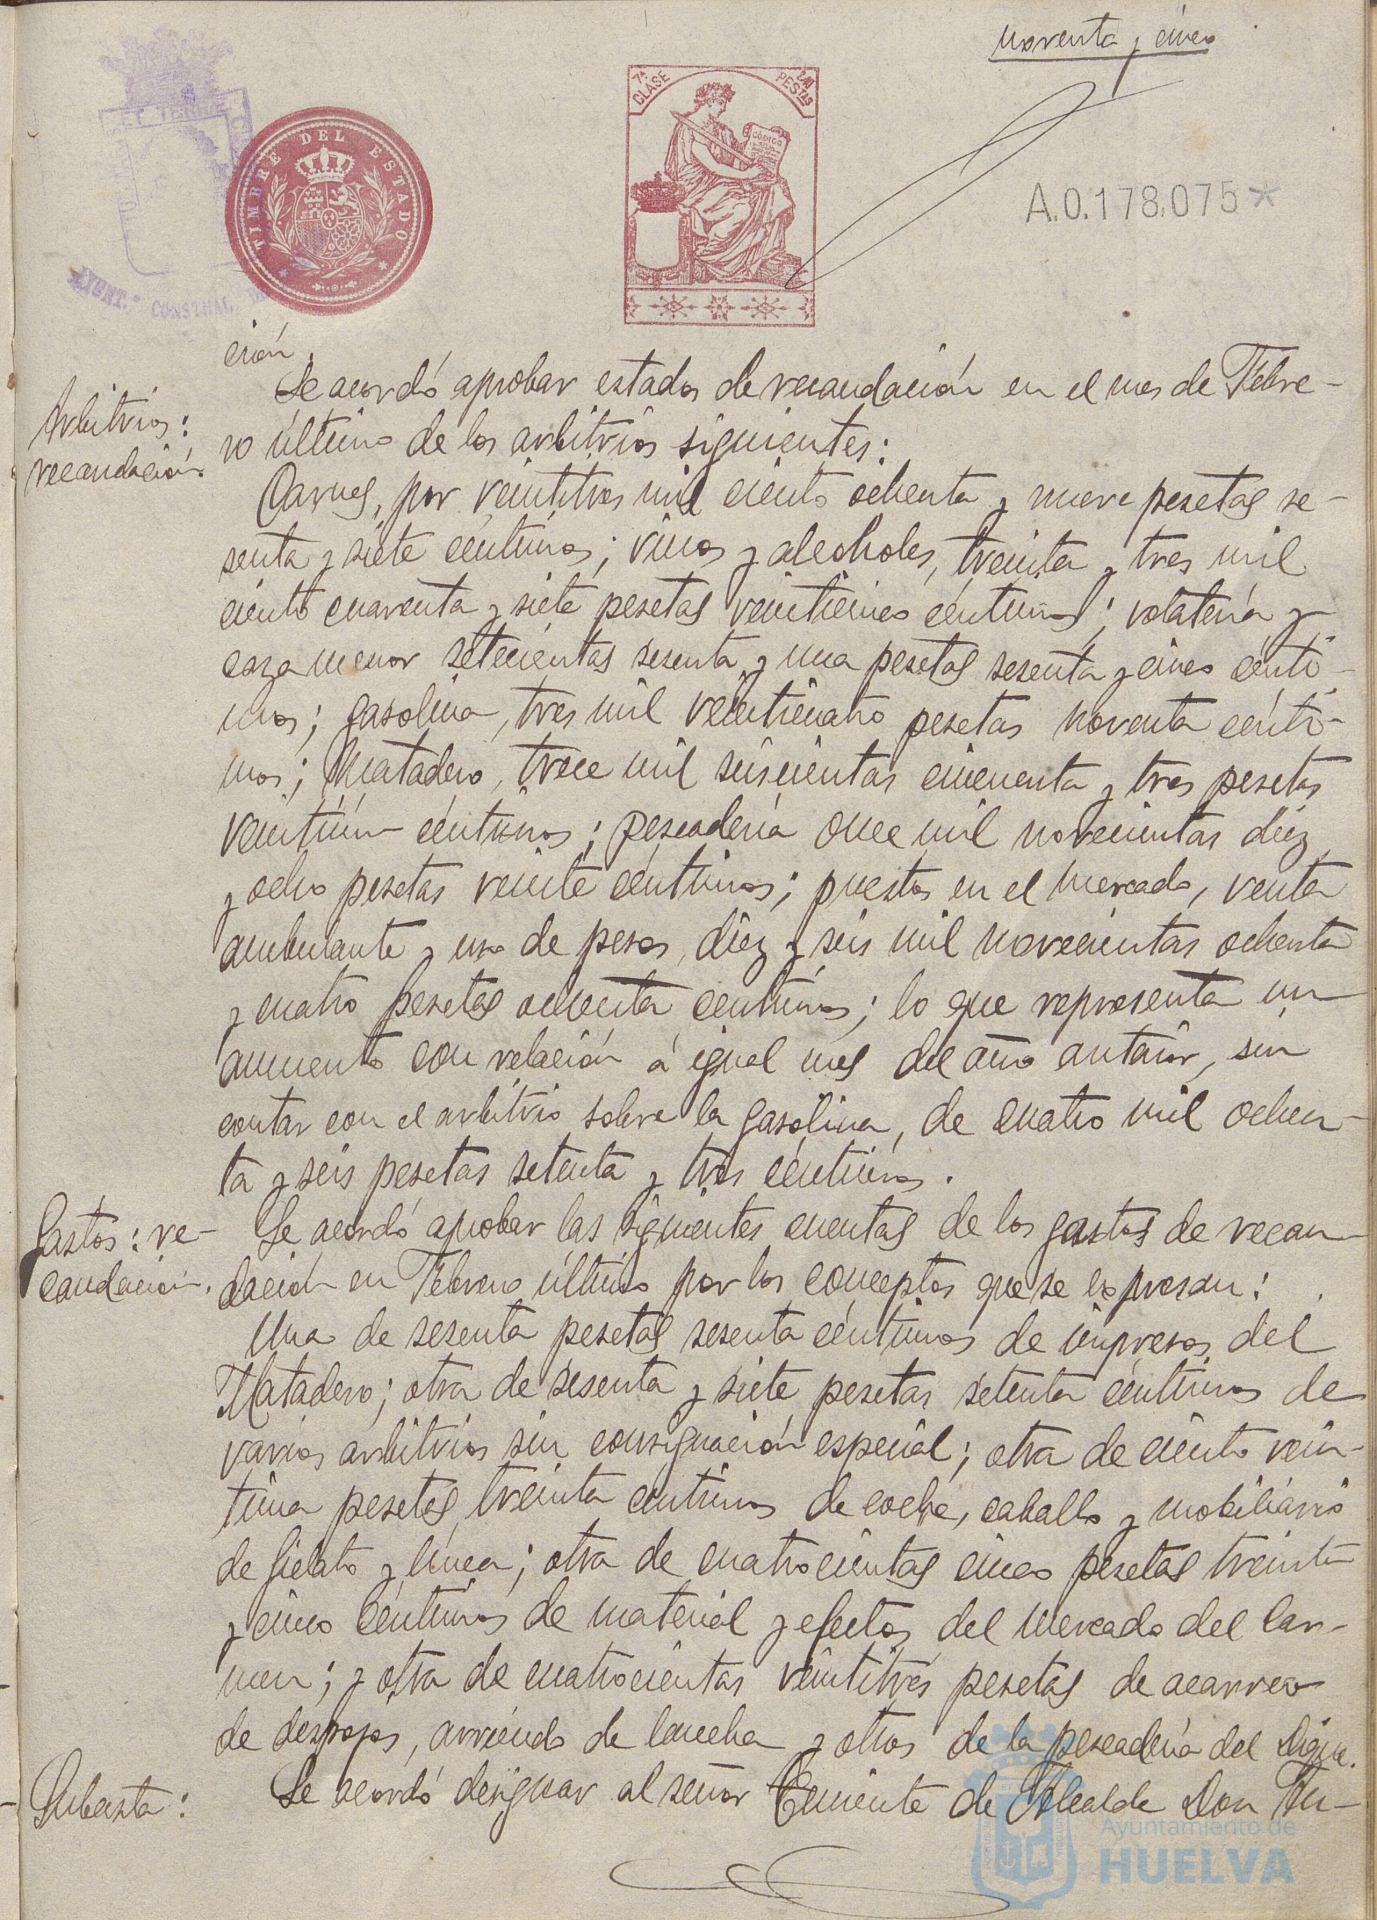 noventa y cinco
7ª CLASE
PESTAS
CÓDIGO
TIMBRE DEL ESTADO
AYUNT.º CONSTNAL. DE
A.0.178.075*
ción.
Arbitrios:
recaudación.
Se acordó aprobar estados de recaudación en el mes de Febre-
ro último de los arbitrios siguientes:
Carnes, por veintitres mil ciento ochenta y nueve pesetas se-
senta y siete céntimos; vinos y alcoholes, treinta y tres mil
ciento cuarenta y siete pesetas veinticinco céntimos; volatería y
caza menor setecientas sesenta y una pesetas sesenta y cinco cénti-
mos; gasolina, tres mil veinticuatro pesetas noventa cénti-
mos; Matadero, trece mil seiscientas cincuenta y tres pesetas
veintiún céntimos; pescadería once mil novecientas diez
y ocho pesetas veinte céntimos; puestos en el Mercado, venta
ambulante y uso de pesos, diez y seis mil novecientas ochenta
y cuatro pesetas ochenta céntimos; lo que representa un
aumento con relación á igual mes del año anterior, sin
contar con el arbitrio sobre la gasolina, de cuatro mil ochen-
ta y seis pesetas setenta y tres céntimos.
Gastos: re-
caudación.
Se acordó aprobar las siguientes cuentas de los gastos de recau-
dación en Febrero último por los conceptos que se expresan:
Una de sesenta pesetas sesenta céntimos de impresos del
Matadero; otra de sesenta y siete pesetas setenta céntimos de
varios arbitrios sin consignación especial; otra de ciento vein-
tiuna pesetas treinta céntimos de coche, caballo y mobiliario
de fielato y línea; otra de cuatrocientas cinco pesetas treinta
y cinco céntimos de material y efectos del Mercado del Car-
men; y otra de cuatrocientas veintitrés pesetas de acarreo
de despojos, arriendo de lancha y otros de la pescadería del Dique.
Subasta:
Se acordó designar al señor Teniente de Alcalde Don Fu-
Ayuntamiento de
HUELVA